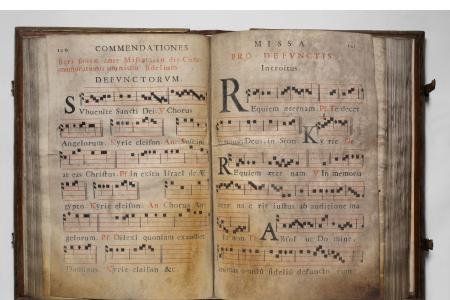 120 COMMENDATIONES
feri solitæ ante Missam in die Com-
memorationis omnium fidelium
DEFVNCTORVM.
SVbuenite Sancti Dei. V Chorus
Angelorum. Kyrie eleison. An. Suscipi
at eas Christus. Ps. In exitu Israel de Æ
gypto. Kyrie eleison. An. Chorus An
gelorum. Ps. Dilexi quoniam exaudiet
Dominus. Kyrie eleison &c.
MISSA 121
PRO DEFVNCTIS.
Introitus.
REquiem æternam. Ps. Te decet
Deus in Sion. Kyrie
REquiem æter nam. V In memoria
æter na e rit iustus ab auditione ma
la non ti ABsol ue Domine,
animas omniũ fideliũ defuncto rum